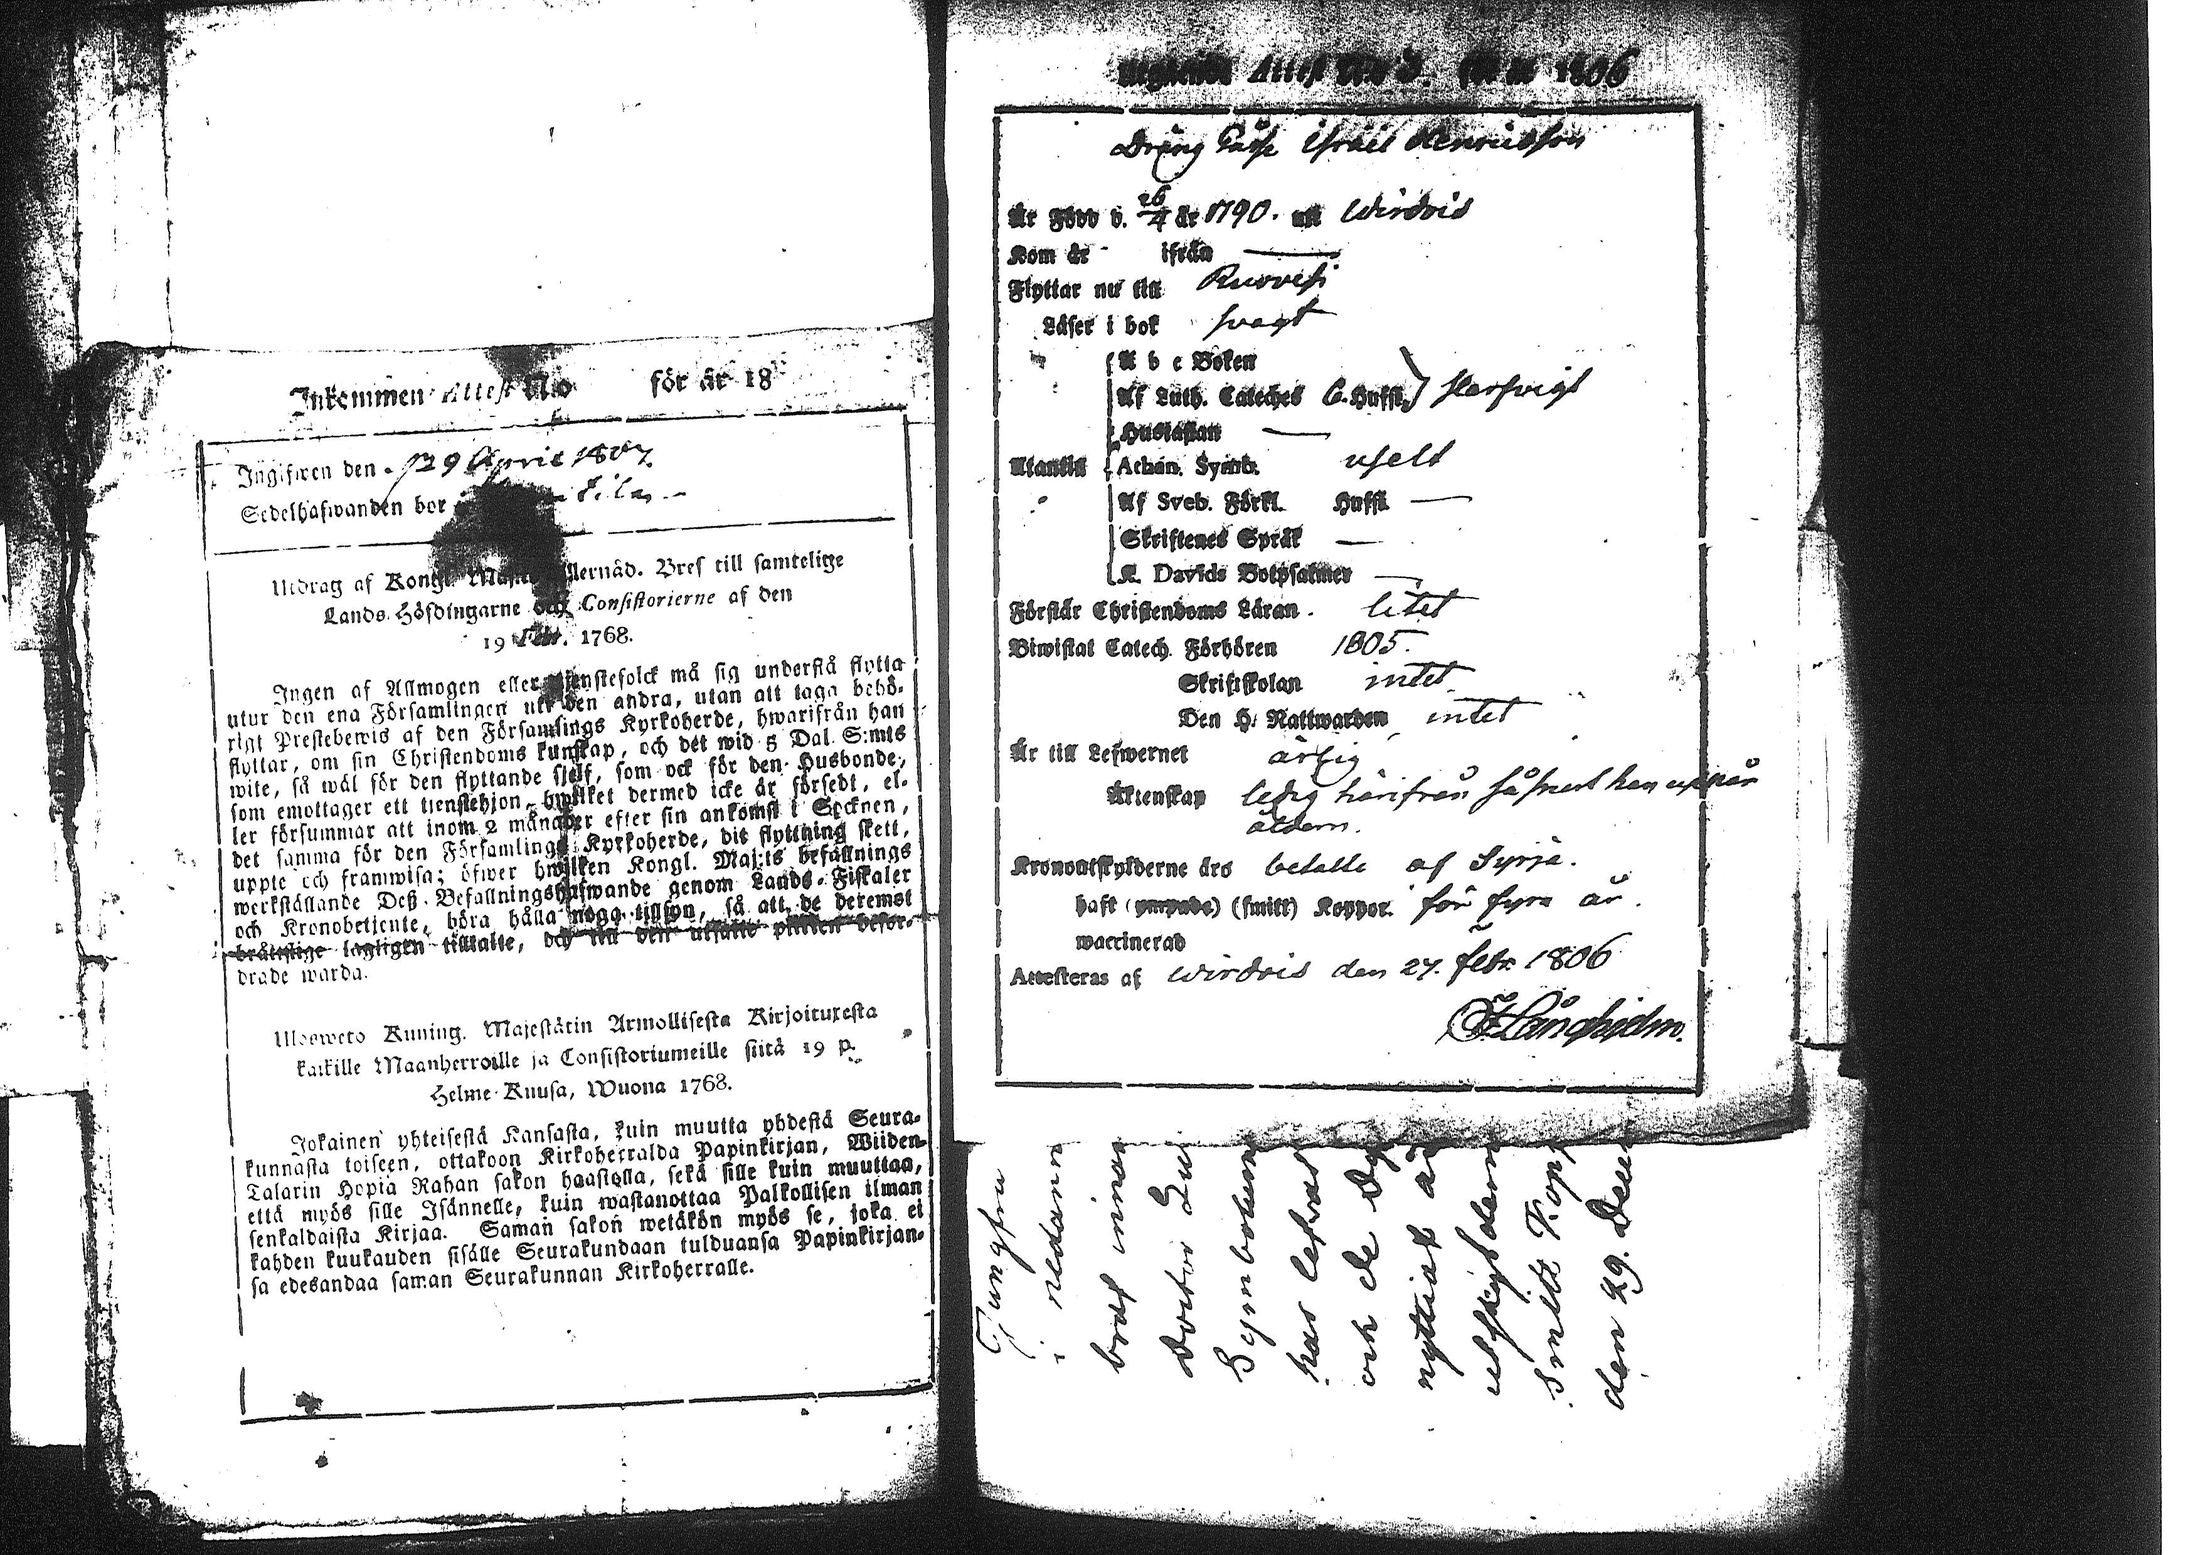 Inkommen Attest N:o för år 18
Ingifwen den 29 April 1807.
Sedelhafwanden bor
Utdrag af Kongl. Maj:ts Allernåd. Bref till samtelige
Lands-Höfdingarne och Consistorierne af den
19 Febr. 1768.
Ingen af Allmogen eller tjenstefolck må sig understå flytta
utur den ena Församlingen till den andra, utan att taga behö-
rigt Prestebewis af den Församlings Kyrkoherde, hwarifrån han
flyttar, om sin Christendoms kunskap, och det wid 5 Dal. S:mts
wite, så wäl för den flyttande sjelf, som ock för den Husbonde,
som emottager ett tienstehjon, hwilket dermed icke är försedt, el-
ler försummar att inom 2 månader efter sin ankomst i Socknen,
det samma för den Församlings Kyrkoherde, dit flyttning skett,
uppte och framwisa; öfwer hwilken Kongl. Maj:ts befallnings
werkställande Deß Befallningshafwande genom Lands-Fiskaler
och Kronobetjente, böra hålla noga tillsyn, så att de deremot
bråtslige lagligen tilltalte, och till den utsatte plickten befor-
drade warda.
Ulosweto Kuning. Majestätin Armollisesta Kirjoituxesta
kaikille Maanherroille ja Consistoriumeille siitä 19 p.
Helme-Kuusa, Wuona 1768.
Jokainen yhteisestä Kansasta, kuin muutta yhdestä Seura-
kunnasta toiseen, ottakoon Kirkoherralda Papinkirjan, Wiiden
Talarin Hopia Rahan sakon haastolla, sekä sille kuin muuttaa,
että myös sille Isännelle, kuin wastanottaa Palkollisen ilman
senkaldaista Kirjaa. Saman sakon wetäkön myös se, joka ei
kahden kuukauden sisälle Seurakundaan tulduansa Papinkirjan-
sa edesandaa saman Seurakunnan Kirkoherralle.
Attest N:o 1806
Dräng Israel Henricsson
Är Född d. 26/4 år 1790. uti Wirdois
Kom år ifrån —
Flyttar nu till Ruovesi
Läser i bok svagt
A b c Boken
Af Luth. Cateches C. Hufst. } 
Huståflan —
Utantill Athan. Symb. uselt
Af Sveb. Förkl. Hufst. —
Skriftenes Språk —
K. Davids Botpsalmer —
Förstår Christendoms Läran. litet
Biwistat Catech. Förhören 1805.
Skriftskolan intet
Den H. Nattwarden intet
Är till Lefwernet ärlig
Äktenskap ledig härifrån så snart han uppnår
åldern.
Kronoutskylderne äro betalte af
haft (ympade) (smitt) Koppor för fyra år.
waccinerad
Attesteras af Wirdois den 27. Febr. 1806
Långhjelm.
Jungfru
i
bref innan
Doctor Lut
Symbolum
har lefvat
och de
nyttiat
utskylderne
Smitt Kopp
den 29. Dece